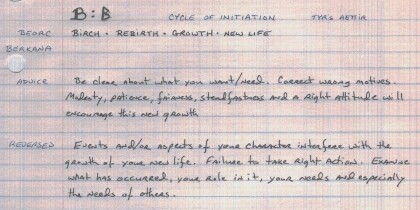 B : B CYCLE OF INITIATION TYR'S AETTIR
BEORC BIRCH · REBIRTH · GROWTH · NEW LIFE
BERKANA
ADVICE Be clear about what you want/need. Correct wrong motives.
Modesty, patience, fairness, steadfastness and a Right Attitude will
encourage this new growth
REVERSED Events and/or aspects of your character interfere with the
growth of your new life. Failure to take Right Action. Examine
what has occurred, your role in it, your needs and especially
the needs of others.